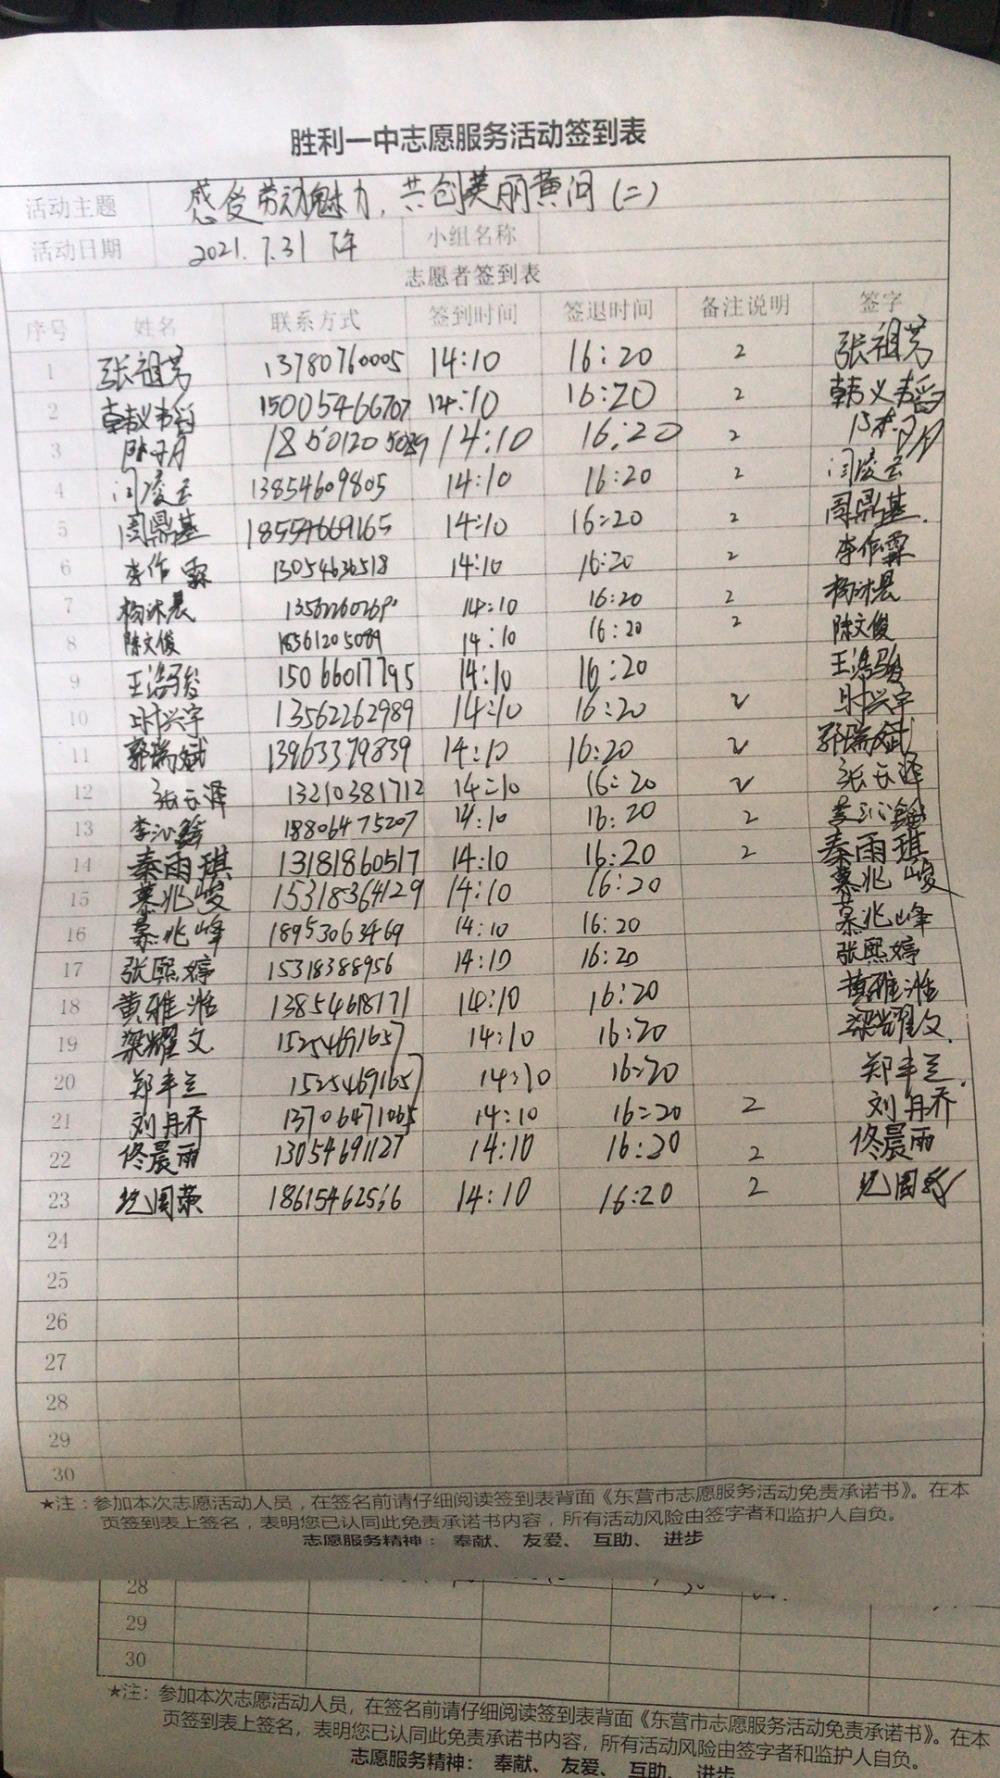 胜利一中志愿服务活动签到表
活动主题 感受劳动魅力,共创美丽黄河(二)
活动日期 2021.7.31 下午 小组名称
志愿者签到表
序号 姓名 联系方式 签到时间 签退时间 备注说明 签字
1 张祖芳 13780760005 14:10 16:20 2 张祖芳
2 韩义韬 15005466707 14:10 16:20 2 韩义韬
3 14:10 16:20 2
4 闫凌云 13854609805 14:10 16:20 2 闫凌云
5 周鼎基 18554669165 14:10 16:20 2 周鼎基.
6 李作霖 13054636518 14:10 16:20 2 李作霖
7 杨沐晨 14:10 16:20 2 杨沐晨
8 陈文俊 18561205089 14:10 16:20 2 陈文俊
9 王浩骏 15066017795 14:10 16:20 王浩骏
10 时兴宇 13562262989 14:10 16:20 2 时兴宇
11 郭瑞斌 13963379839 14:10 16:20 2 郭瑞斌
12 张云泽 13210381712 14:10 16:20 2 张云泽
13 18806475207 14:10 16:20 2
14 秦雨琪 13181860517 14:10 16:20 2 秦雨琪
15 慕兆峻 15318364129 14:10 16:20 慕兆峻
16 慕兆峰 18953063469 14:10 16:20 慕兆峰
17 张熙婷 15318388956 14:10 16:20 张熙婷
18 黄雅湉 13854618171 14:10 16:20 黄雅湉
19 梁耀文 15254691657 14:10 16:20 梁耀文.
20 郑丰兰 15254691657 14:10 16:20 郑丰兰.
21 刘丹乔 13706471065 14:10 16:20 2 刘丹乔
22 佟晨雨 13054691127 14:10 16:20 2 佟晨雨
23 14:10 16:20 2
24
25
26
27
28
29
30
★注:参加本次志愿活动人员,在签名前请仔细阅读签到表背面《东营市志愿服务活动免责承诺书》。在本
页签到表上签名,表明您已认同此免责承诺书内容,所有活动风险由签字者和监护人自负。
志愿服务精神: 奉献、 友爱、 互助、 进步
28
29
30
★注:参加本次志愿活动人员,在签名前请仔细阅读签到表背面《东营市志愿服务活动免责承诺书》。在本
页签到表上签名,表明您已认同此免责承诺书内容,所有活动风险由签字者和监护人自负。
志愿服务精神: 奉献、 友爱、 互助、 进步